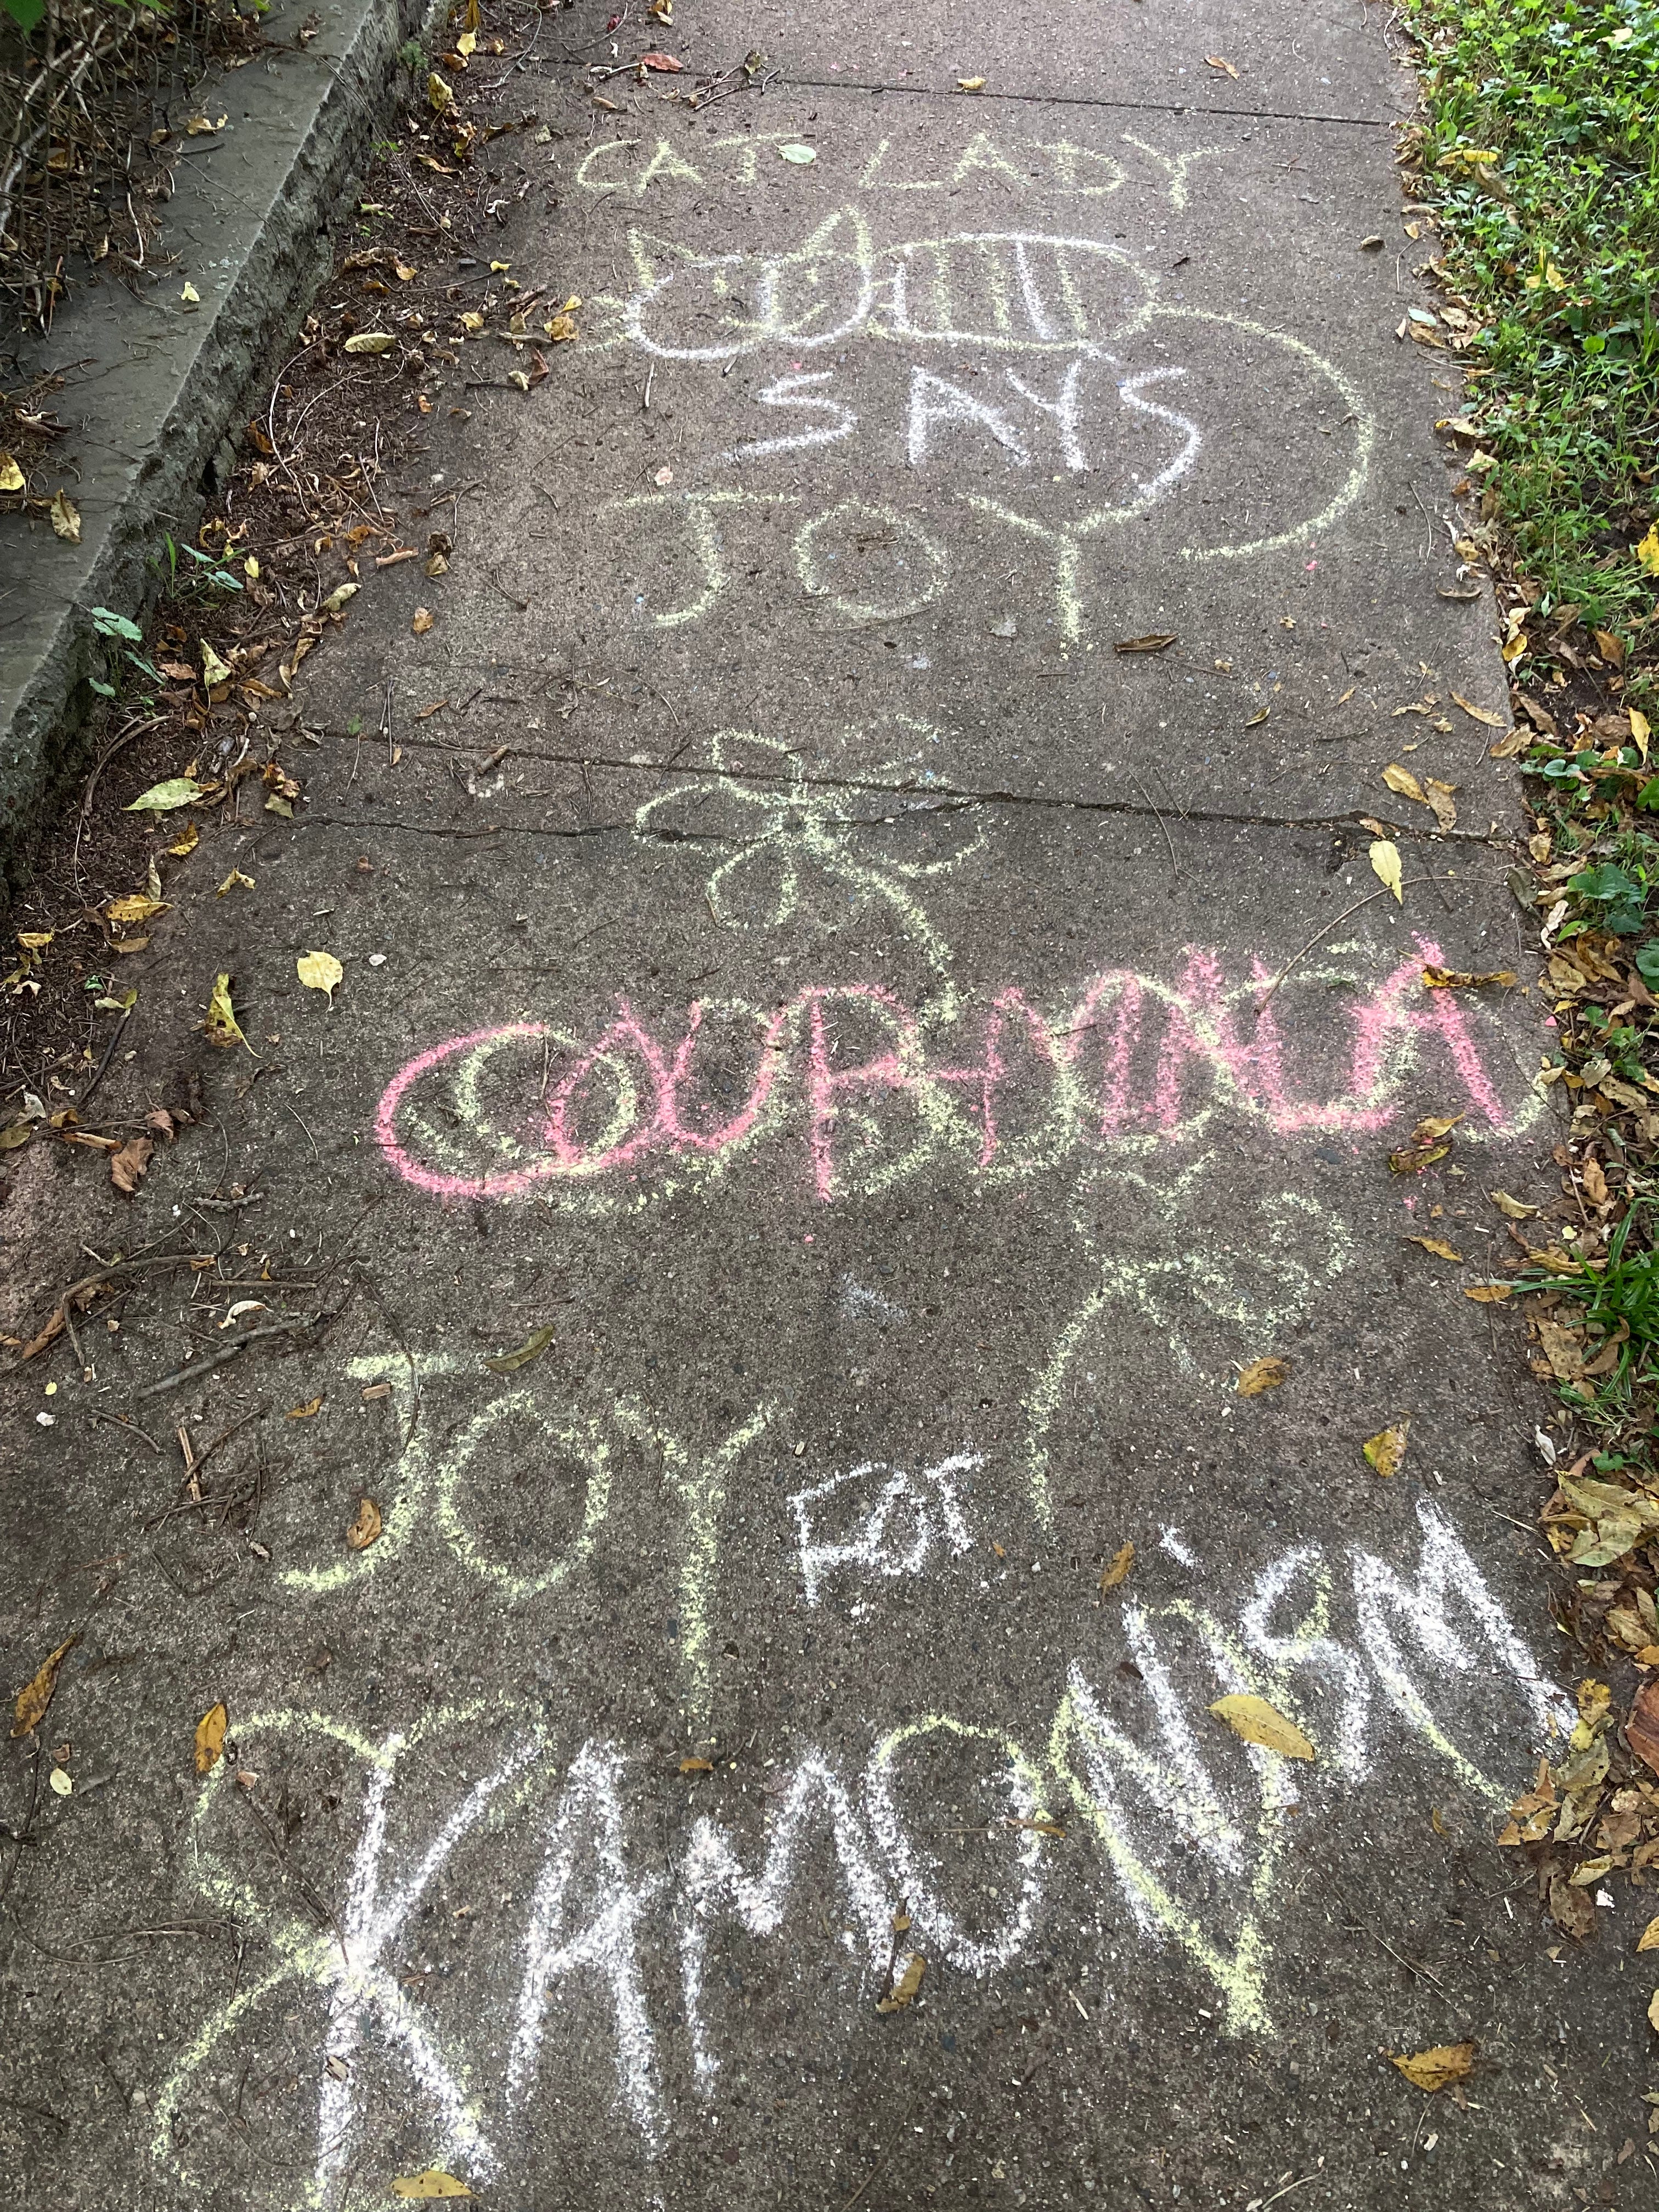 CAT LADY
SAYS
JOY
JOY
FOr
KAMONiSM